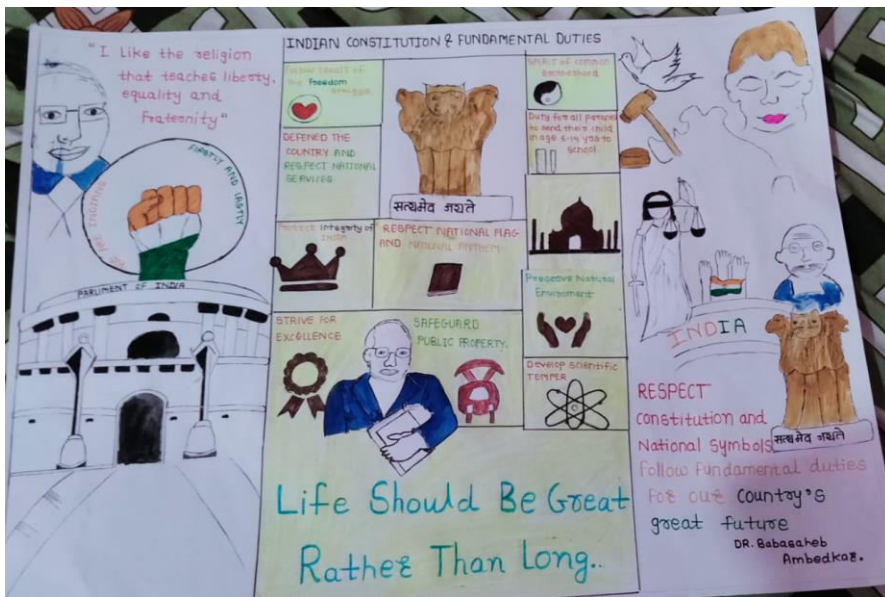 "I Like the religion
that teaches liberty,
equality and
Fraternity"
FIRSTLY AND LASTLY
WE ARE INDIANS
PARLIMENT OF INDIA
INDIAN CONSTITUTION & FUNDAMENTAL DUTIES
Follow ideals of
the Freedom
struggle
DEFENED THE
COUNTRY AND
RESPECT NATIONAL
SERVICES
सत्यमेव जयते
Spirit of common
Brotherhood
Duty for all parents
to send their child
in age 6-14 yrs to
school
Protect Integrity of
INDIA
RESPECT NATIONAL FLAG
AND NATIONAL ANTHEM
Preserve Natural
Enviroment
STRIVE FOR
EXCELLENCE
SAFEGUARD
PUBLIC PROPERTY.
Develop Scientific
TEMPER
Life Should Be Great
Rather Than Long..
INDIA
RESPECT
Constitution and
National Symbols
सत्यमेव जयते
Follow Fundamental duties
For our Country's
great future
DR. Babasaheb
Ambedkar.